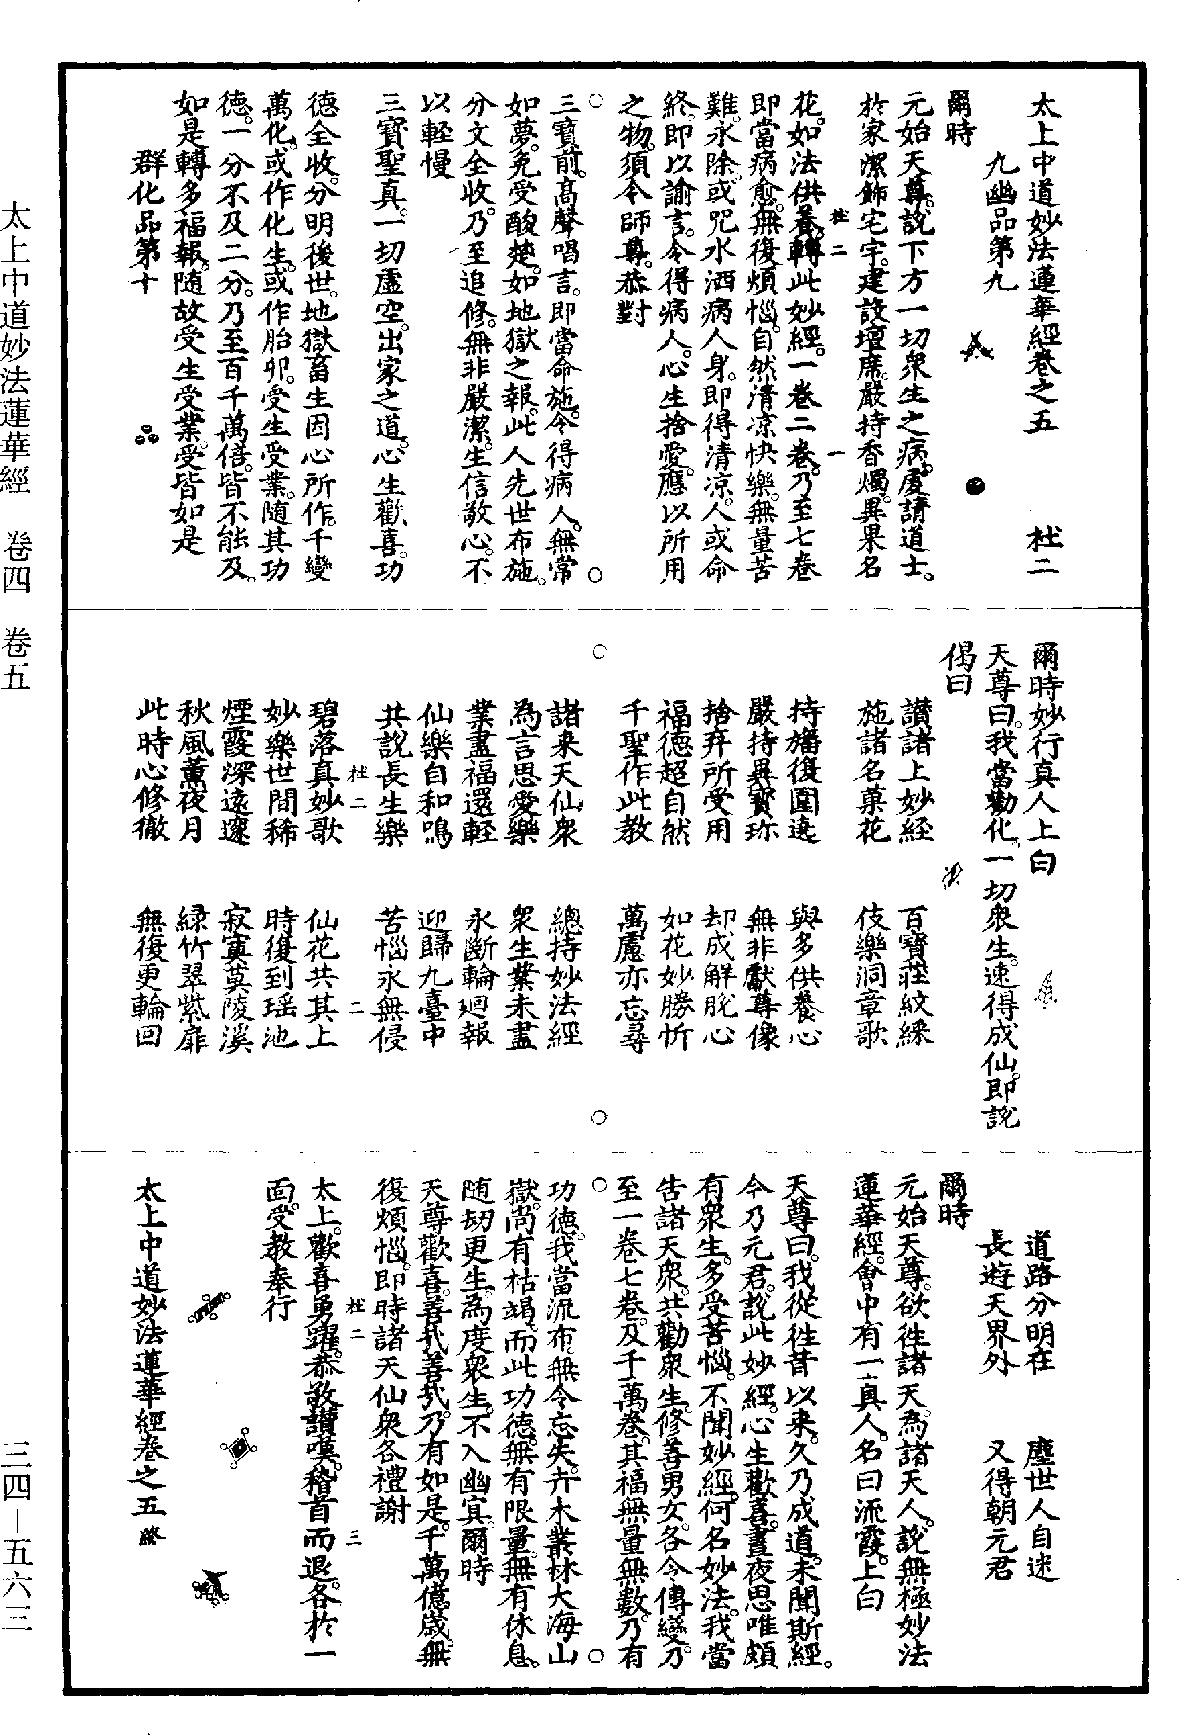 太上中道妙法蓮華經卷之五　杜二
九幽品第九
爾時
元始天尊。說下方一切衆生之病。虔請道士。
於家潔飾宅宇。建設壇席。嚴持香燭。異果名
花。如法供養。轉此妙經。一卷二卷。乃至七卷
杜二　一
即當病愈。無復煩惱。自然清凉快樂。無量苦
難。永除。或咒水洒病人身。即得清凉。人或命
終。即以諭言。令得病人。心生捨愛。應以所用
之物。須令師尊。恭對
三寶前。高聲唱言。即當命施。令得病人。無常
如夢。免受酸楚。如地獄之報。此人先世布施。
分文全收。乃至追修。無非嚴潔。生信敬心。不
以輕慢
三寶聖真。一切虛空。出家之道。心生歡喜。功
德全收。分明後世。地獄畜生。因心所作。千變
萬化。或作化生。或作胎卵。受生受業。隨其功
德。一分不及二分。乃至百千萬倍。皆不能及。
如是轉多福報。隨故受生受業。受皆如是
群化品第十
爾時妙行真人上白
天尊曰。我當勸化。一切衆生。速得成仙。即說
偈曰
讚諸上妙經　百寶莊紋綵
施諸名菓花　伎樂洞章歌
持旛復圍遶　與多供養心
嚴持異寶珎　無非獻尊像
捨弃所受用　却成解脫心
福德超自然　如花妙勝忻
千聖作此教　萬慮亦忘尋
諸來天仙衆　總持妙法經
為言思愛樂　衆生業未盡
業盡福還輕　永斷輪迴報
仙樂自和鳴　迎歸九臺中
共說長生樂　苦惱永無侵
杜二　二
碧落真妙歌　仙花共其上
妙樂世間稀　時復到瑶池
煙霞深遠邃　寂寞莫陵溪
秋風薰夜月　緑竹翠紫扉
此時心修徹　無復更輪回
道路分明在　塵世人自迷
長遊天界外　又得朝元君
爾時
元始天尊。欲徃諸天。為諸天人。說無極妙法
蓮華經。會中有一真人。名曰流霞。上白
天尊曰。我從徃昔以来。久乃成道。未聞斯經。
今乃元君。說此妙經。心生歡喜。晝夜思唯。頗
有衆生。多受苦惱。不聞妙經。何名妙法。我當
告諸天衆。共勸衆生。修善男女。各令傳變。乃
至一卷七卷。及千萬卷。其福無量無數。乃有
功德。我當流布。無令忘失。卉木叢林大海山
嶽。尚有枯竭。而此功德。無有限量。無有休息。
随刼更生。為度衆生。不入幽冥。爾時
天尊歡喜。善㢤善㢤。乃有如是。千萬億歲。無
復煩惱。即時諸天仙衆各禮謝
杜二　三
太上。歡喜勇躍。恭敬讚嘆。稽首而退。各於一
面。受教奉行
太上中道妙法蓮華經卷之五終
太上中道妙法蓮華經　卷四　卷五
三四－五六三